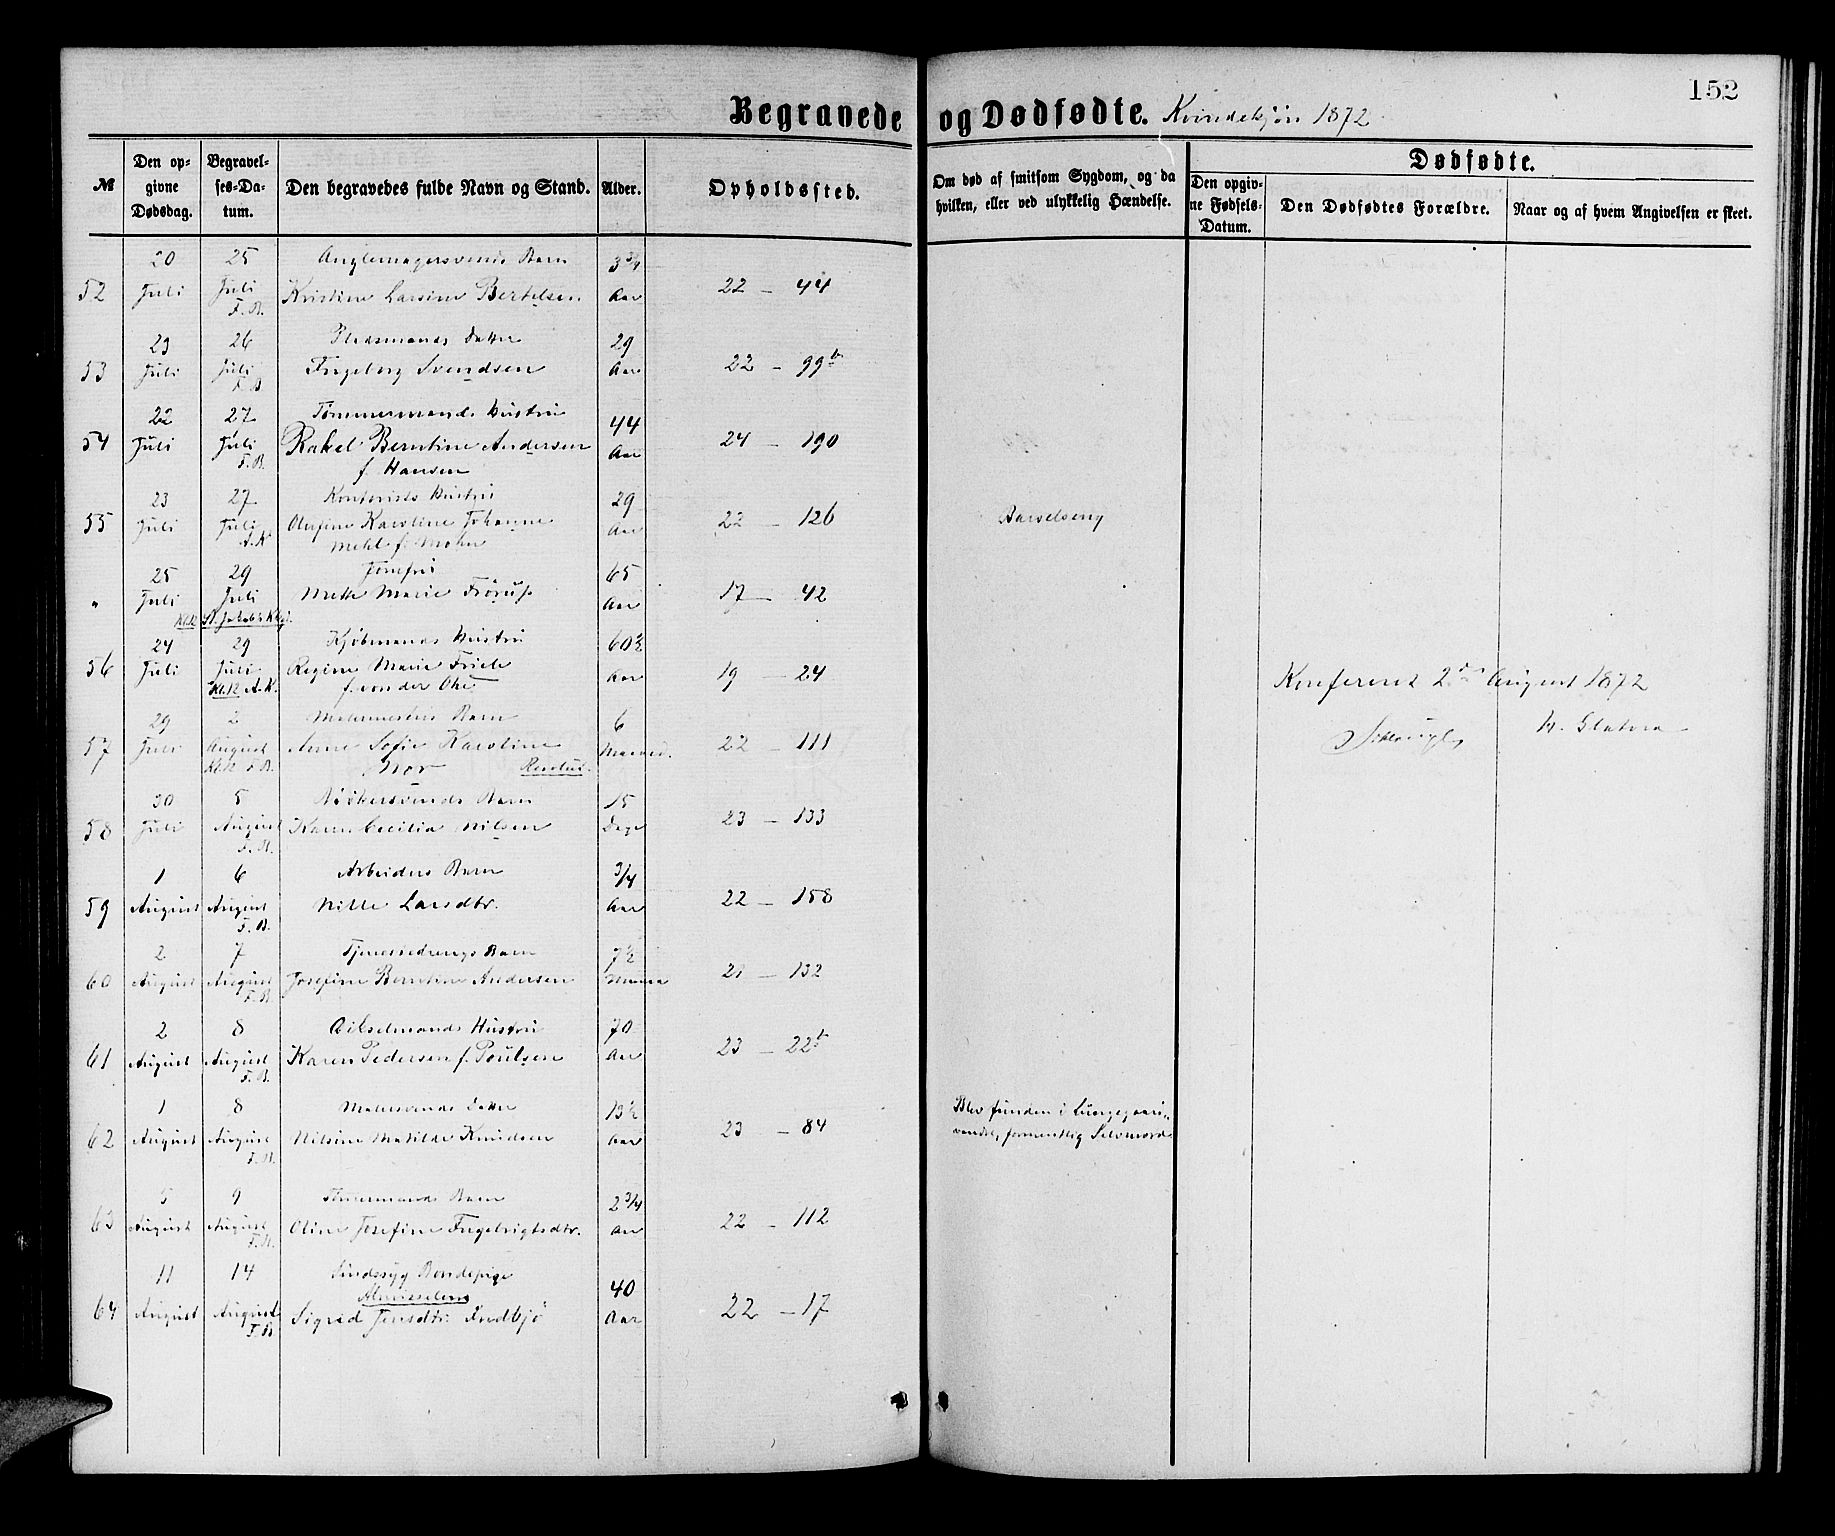 152
Begravede og Dødfødte. Kvindekjøn 1872
№
Den opgivne Dødsdag.
Begravelses-Datum.
Den begravedes fulde Navn og Stand.
Alder.
Opholdssted.
Om død af smitsom Sygdom, og da hvilken, eller ved ulykkelig Hændelse.
Dødfødte.
Den opgivne Fødsels-Datum.
Den Dødfødtes Forældre.
Naar og af hvem Angivelsen er skeet.
20 25 Barn 3 3/4
52 Juli Juli Kristine Larsine Bertelsen Aar 22 – 44
F. B.
23 26 Datter 29
53 Juli Juli Ingeborg Svendsen Aar 22 – 99 b
F. B.
22 27 Tømmermands Hustru 44
54 Juli Juli Rakel Berntine Andersen Aar 24 – 190
F. B. f. Hansen
23 27 Hustru 29
55 Juli Juli Karoline Johanne Aar 22 – 126 Barselseng
A. K. Mehl f. Mohn
25 29 Jomfru 65
" Juli Juli Mette Marie Aar 17 – 42
Kl. 12 St. Jakobs Kkgd.
24 29 Kjøbmands Hustru 60 1/2
56 Juli Juli Regine Marie Friele Aar 19 – 24
Kl. 12 A. K. f. von der Ohe
Konfereret 2den August 1872
29 2 Barn 6
57 Juli August Anne Sofie Karoline Maaned. 22 – 111
Kl. 12 F. B. Mor
30 5 Bødkersvends Barn 15
58 Juli August Karen Cecilia Nilsen Dage 23 – 133
F. B.
1 6 Arbeiders Barn 3/4
59 August August Nille Larsdtr. Aar 22 – 158
F. B.
2 7 Barn 7 1/2
60 August August Josefine Berntine Andersen 21 – 132
F. B.
2 8 Hustru 70
61 August August Karen Pedersen f. Poulsen Aar 23 – 22 b
F. B.
1 8 Datter 13 1/2
62 August August Nilsine Matilde Knudsen Aar 23 – 84
F. B.
Blev funden i Lungegaards-
vandet, formentlig Selvmord
5 9 Tømmermands Barn 2 3/4
63 August August Oline Josefine Ingebrigtsdtr. Aar 22 – 112
F. B.
11 14 Sindssyg Bondepige 40
Almisselem
64 August August Sigrid Jensdtr. Aar 22 – 17
F. B.